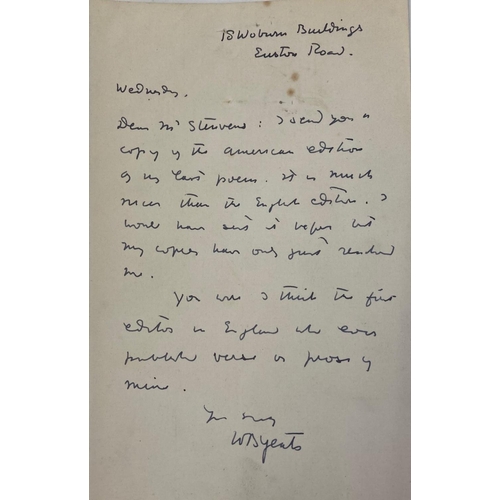 18 Woburn Buildings
Euston Road.
Wednesday.
Dear Mr Stevens: I send you a
copy of the American edition
of my last poem. It is much
nicer than the English edition. I
would have sent it before but
my copies have only just reached
me.
You were I think the first
editor in England who ever
published verse or prose of
mine.
Yrs sincely
WB Yeats